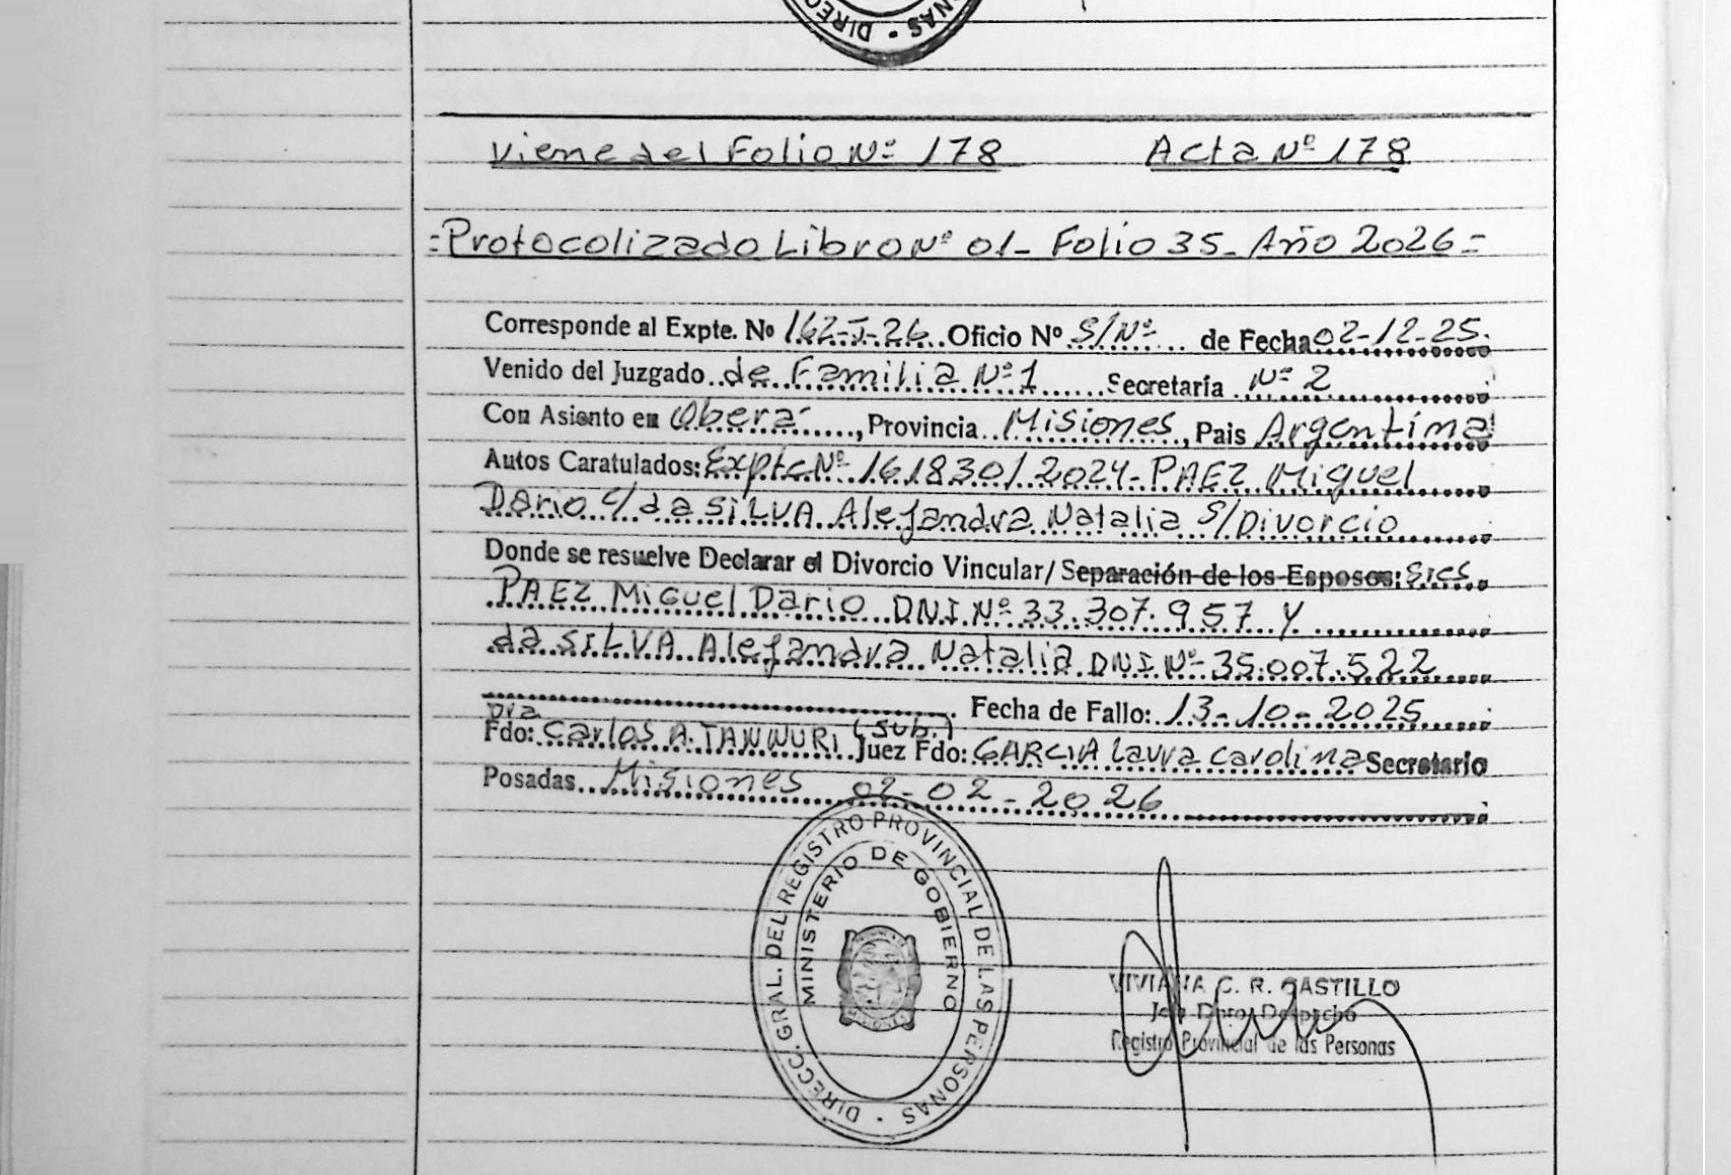 DIRECC NAS
Viene del Folio Nº 178 Acta Nº 178
=Protocolizado Libro Nº 01- Folio 35- Año 2026=
Corresponde al Expte. Nº 162-I-26 Oficio Nº S/Nº de Fecha 02-12-25
Venido del Juzgado de Familia Nº 1 Secretaría Nº 2
Con Asiento en Oberá, Provincia Misiones, Pais Argentina
Autos Caratulados: Expte Nº 161830/2024- PAEZ Miguel
Dario c/ da SILVA Alejandra Natalia S/Divorcio
Donde se resuelve Declarar el Divorcio Vincular/ Separación de los Esposos:
PAEZ Miguel Dario DNI Nº 33.307.957 Y
da SILVA Alejandra Natalia DNI Nº 35.007.522
Fecha de Fallo: 13-10-2025
Fdo: Dra Carlos A. TANNURI (Sub.) Juez Fdo: GARCIA Laura Carolina Secretario
Posadas Misiones 02-02-2026
DIRECC. GRAL. DEL REGISTRO PROVINCIAL DE LAS PERSONAS
MINISTERIO DE GOBIERNO
VIVIANA C. R. CASTILLO
Despacho
Registro Provincial de las Personas